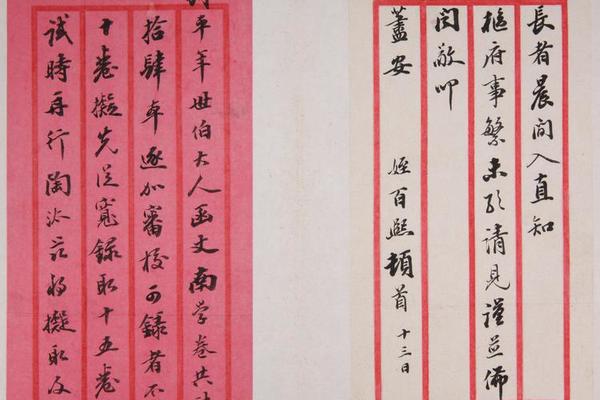 長者晨间入直知
樞府事繁未敢請見謹並佈
聞敬叩
藎安 姪百熙頓首 十三日
年世伯大人函丈南学卷共
拾肆本逐加審校可錄者不
十卷擬先從寬錄取十五卷
試時再行陶汰擬取及